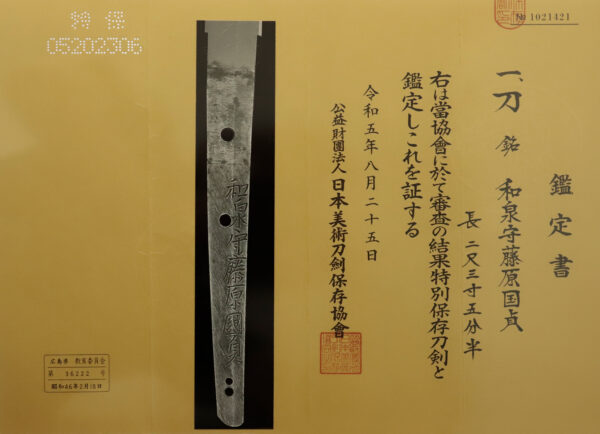 № 1021421
鑑定書
一、刀 銘 和泉守藤原国貞
長 二尺三寸五分半
右は當協會に於て審査の結果特別保存刀剣と
鑑定しこれを証する
令和五年八月二十五日
公益財團法人 日本美術刀剣保存協會
特保
05202306
和泉守藤原國貞
広島県 教育委員会
第 36222 号
昭和46年2月18日